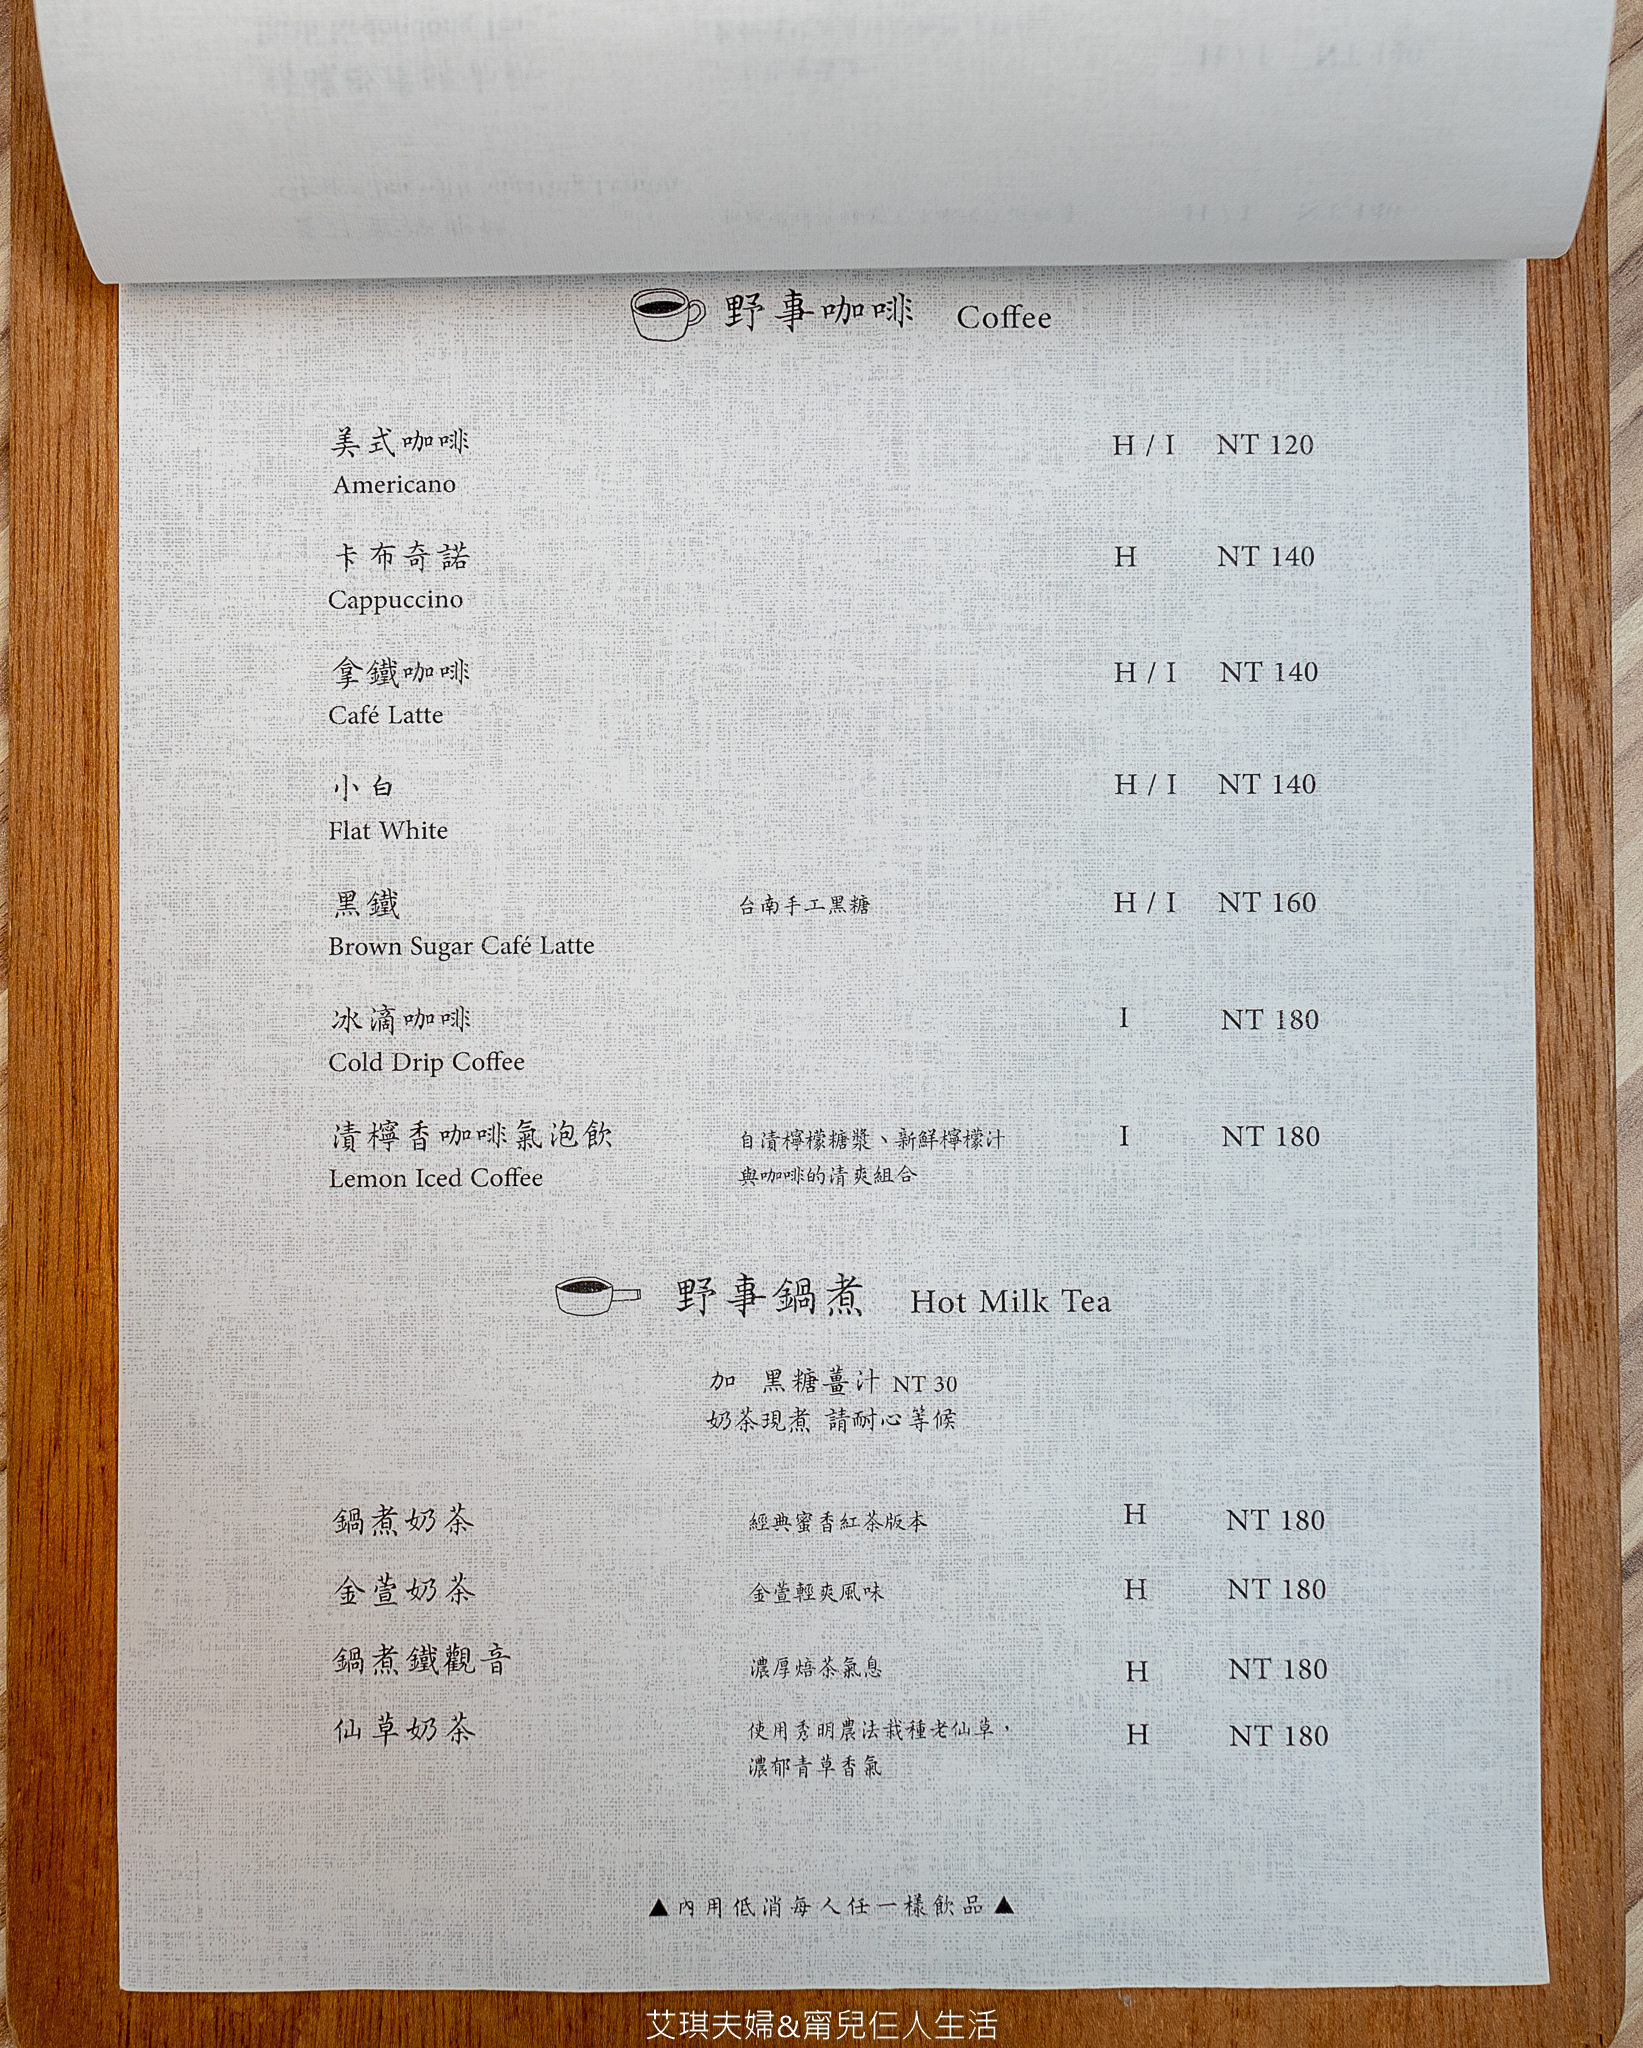 野事咖啡 Coffee
美式咖啡 H / I NT 120
Americano
卡布奇諾 H NT 140
Cappuccino
拿鐵咖啡 H / I NT 140
Café Latte
小白 H / I NT 140
Flat White
黑鐵 台南手工黑糖 H / I NT 160
Brown Sugar Café Latte
冰滴咖啡 I NT 180
Cold Drip Coffee
漬檸香咖啡氣泡飲 自漬檸檬糖漿、新鮮檸檬汁 I NT 180
Lemon Iced Coffee 與咖啡的清爽組合
野事鍋煮 Hot Milk Tea
加 黑糖薑汁 NT 30
奶茶現煮 請耐心等候
鍋煮奶茶 經典蜜香紅茶版本 H NT 180
金萱奶茶 金萱輕爽風味 H NT 180
鍋煮鐵觀音 濃厚焙茶氣息 H NT 180
仙草奶茶 使用秀明農法栽種老仙草， H NT 180
濃郁青草香氣
▲內用低消每人任一樣飲品▲
艾琪夫婦&甯兒仨人生活